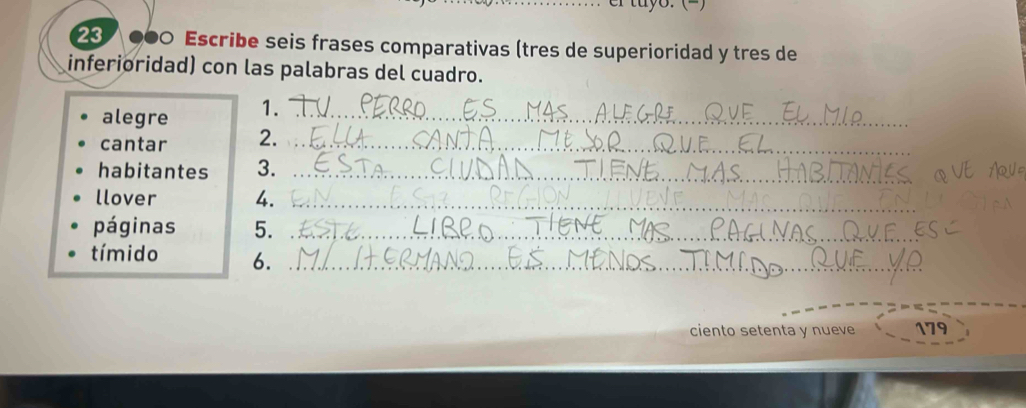 el tuyo. (-)
23 Escribe seis frases comparativas (tres de superioridad y tres de
inferioridad) con las palabras del cuadro.
• alegre
• cantar
• habitantes
• llover
• páginas
• tímido
1. TU PERRO ES MAS ALEGRE QUE EL MIO
2. ELLA CANTA MEJOR QUE EL
3. ESTA CIUDAD TIENE MAS HABITANTES QUE
4. EN ESTA REGION LLUEVE MAS QUE EN
5. ESTE LIBRO TIENE MAS PAGINAS QUE
6. MI HERMANO ES MENOS TIMIDO QUE YO
ciento setenta y nueve 179